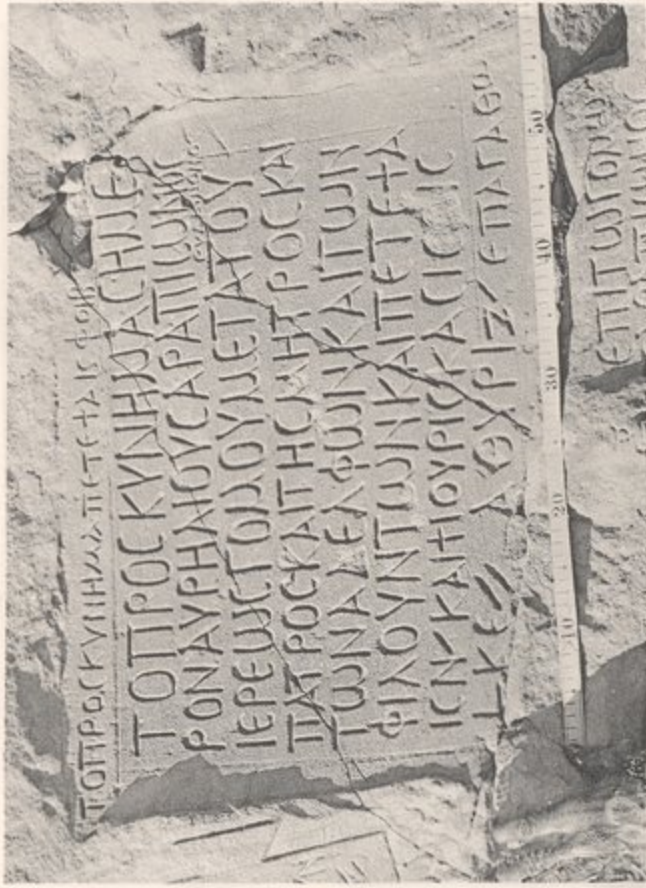 ΤΟΠΡΟCΚΥΝΗΜΑΠΕΤΕΨΑΙC
ΤΟΠΡΟCΚΥΝΗΜΑCΗΜΕ
ΡΟΝΑΥΡΗΛΙΟΥCΑΡΑΠΙΩΝΟC
ΙΕΡΕΩCΓΟΜΟΥΜΕΤΑΤΟΥ
ΠΑΤΡΟCΚΑΙΤΗCΜΗΤΡΟCΚΑΙ
ΤΩΝΑΔΕΛΦΩΝΚΑΙΤΩΝ
ΦΙΛΟΥΝΤΩΝΚΑΙΠΕΤΕΨΑ
ΙCΝ/ΚΑΙΨΟΥΡΙCΚΑCΙC ΙC
LΚΕ// ΑΘΥΡΙΖ/ ΕΠΑΓΑΘΩ
10 20 30 40 50
ΕΠΙΤΩΓΟΜΩ